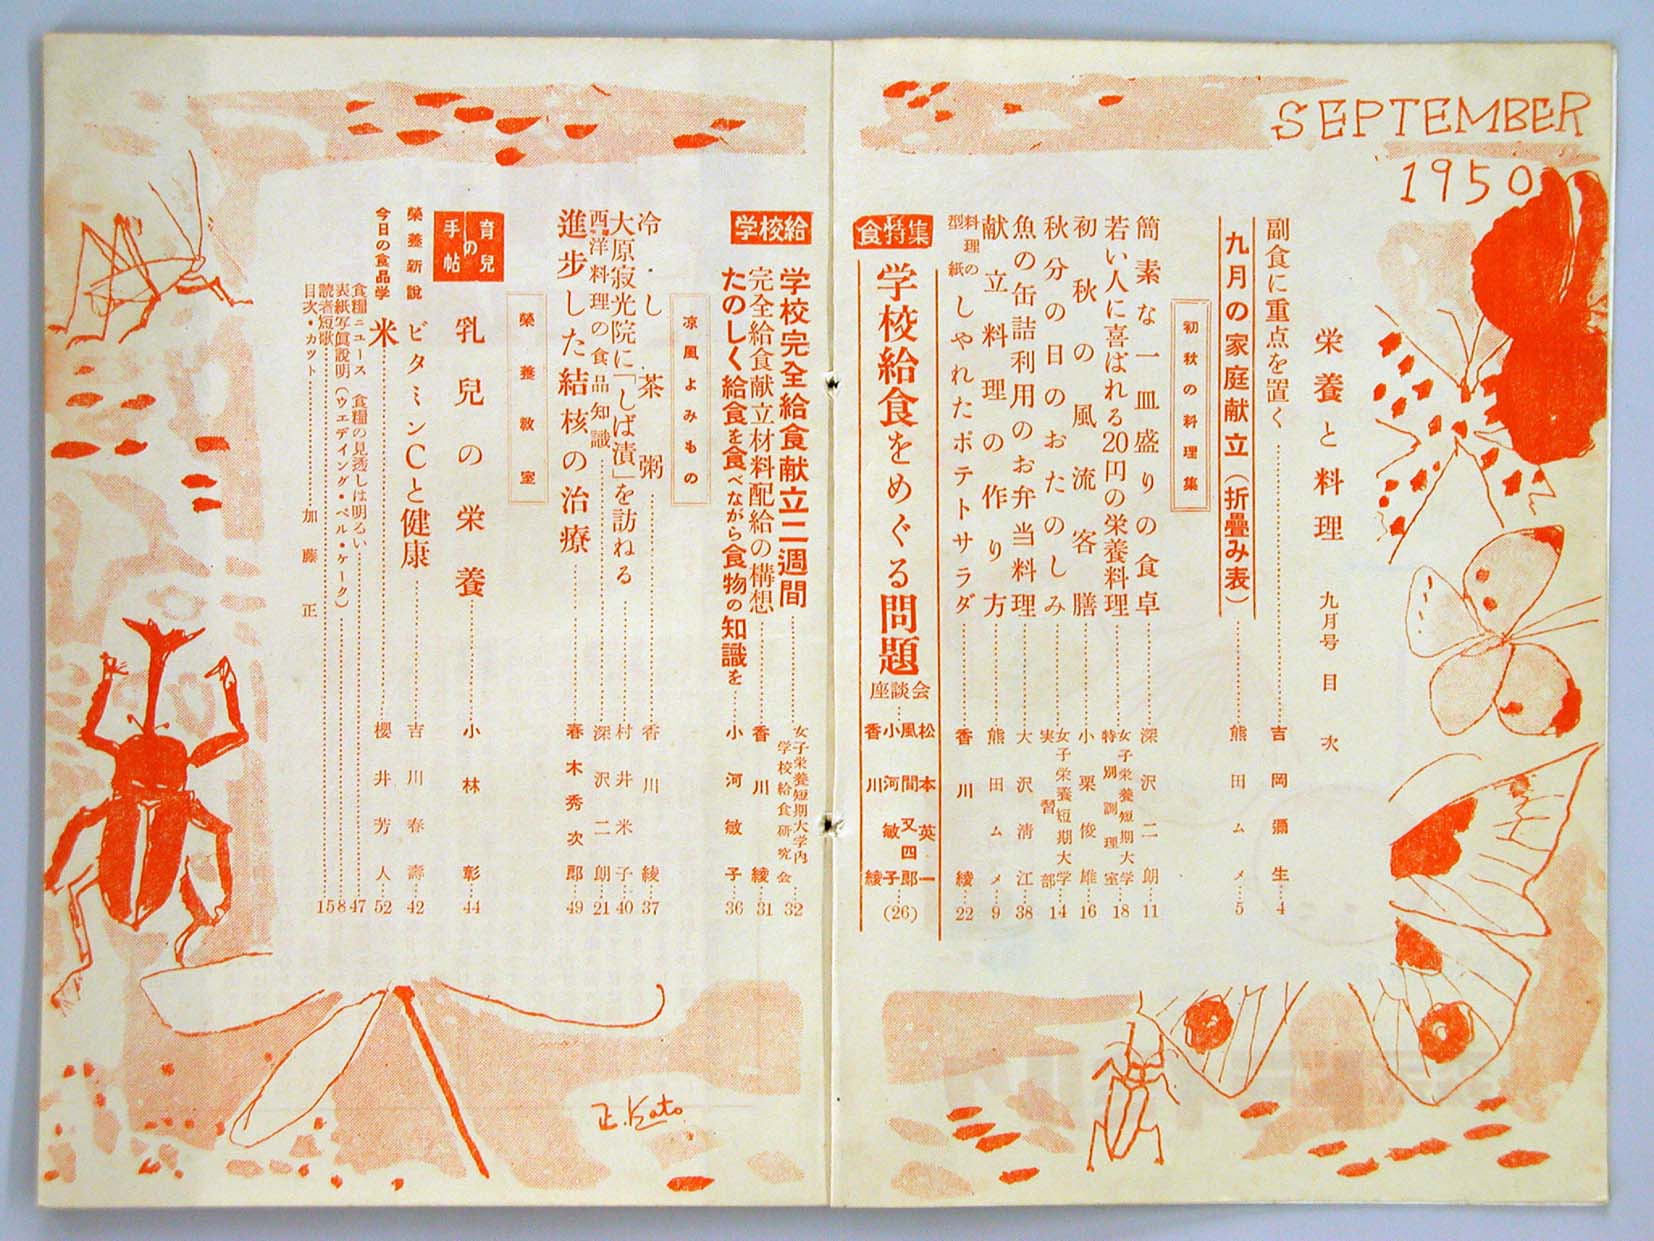 SEPTEMBER
1950
栄養と料理 九月号 目次
副食に重点を置く……吉岡彌生…4
九月の家庭献立(折疊み表)……熊田ムメ…5
初秋の料理集
簡素な一皿盛りの食卓……深沢二朗…11
若い人に喜ばれる20円の栄養料理……女子栄養短期大学特別調理室…18
初秋の風流客膳……小栗俊雄…16
秋分の日のおたのしみ……女子栄養短期大学実習部…14
魚の缶詰利用のお弁当料理……大沢清江…38
献立料理の作り方……熊田ムメ…9
料理の型紙 しやれたポテトサラダ……香川綾…22
学校給食特集
学校給食をめぐる問題 座談会…松本英一 風間又四郎 小河敏子 香川綾(26)
学校完全給食献立二週間……女子栄養短期大学内学校給食研究会…32
完全給食献立材料配給の構想……香川綾…31
たのしく給食を食べながら食物の知識を…小河敏子…36
凉風よみもの
冷し茶粥……香川綾…37
大原寂光院に「しば漬」を訪ねる……村井米子…40
西洋料理の食品知識……深沢二朗…21
進步した結核の治療……春木秀次郎…49
榮養教室
育兒の手帖
乳兒の栄養……小林彰…44
榮養新說 ビタミンCと健康……吉川春壽…42
今日の食品学 米……櫻井芳人…52
食糧ニュース 食糧の見透しは明るい……47
表紙写眞説明(ウエデイング・ベル・ケーク)……8
読者短歌……15
目次・カツト……加藤正
正.Kato.